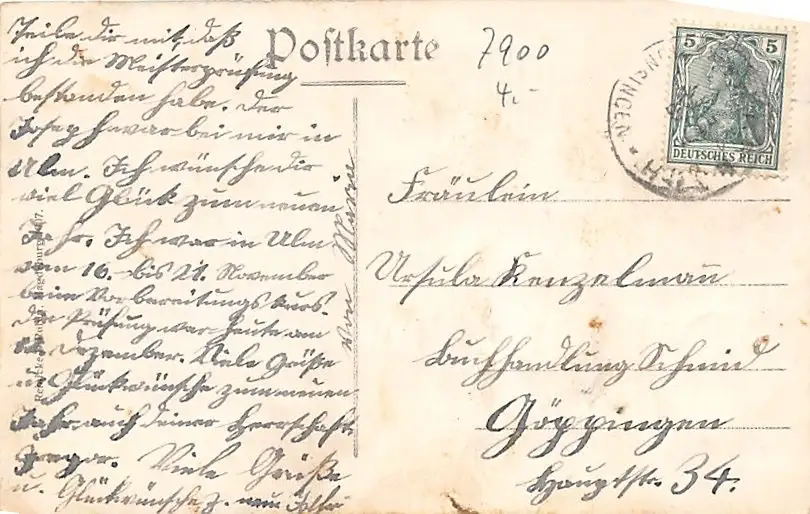 Teile dir mit, daß
ich die Meisterprüfung
bestanden habe. Der
Joseph war bei mir in
Ulm. Ich wünsche dir
viel Glück zum neuen
Jahr. Ich war in Ulm
vom 16. bis 21. November
beim Vorbereitungskurs.
Die Prüfung war heute am
Dezember. Viele Grüße
u. Glückwünsche zum neuen
Jahr auch deiner Herrschaft.
Gregor. Viele Grüße
u. Glückwünsche z. neuen Jahr
von
Postkarte
7900
4.-
5 5
DEUTSCHES REICH
Fräulein
Ursula Kenzelmann
Buchhandlung Schmid
Göppingen
Hauptstr. 34.